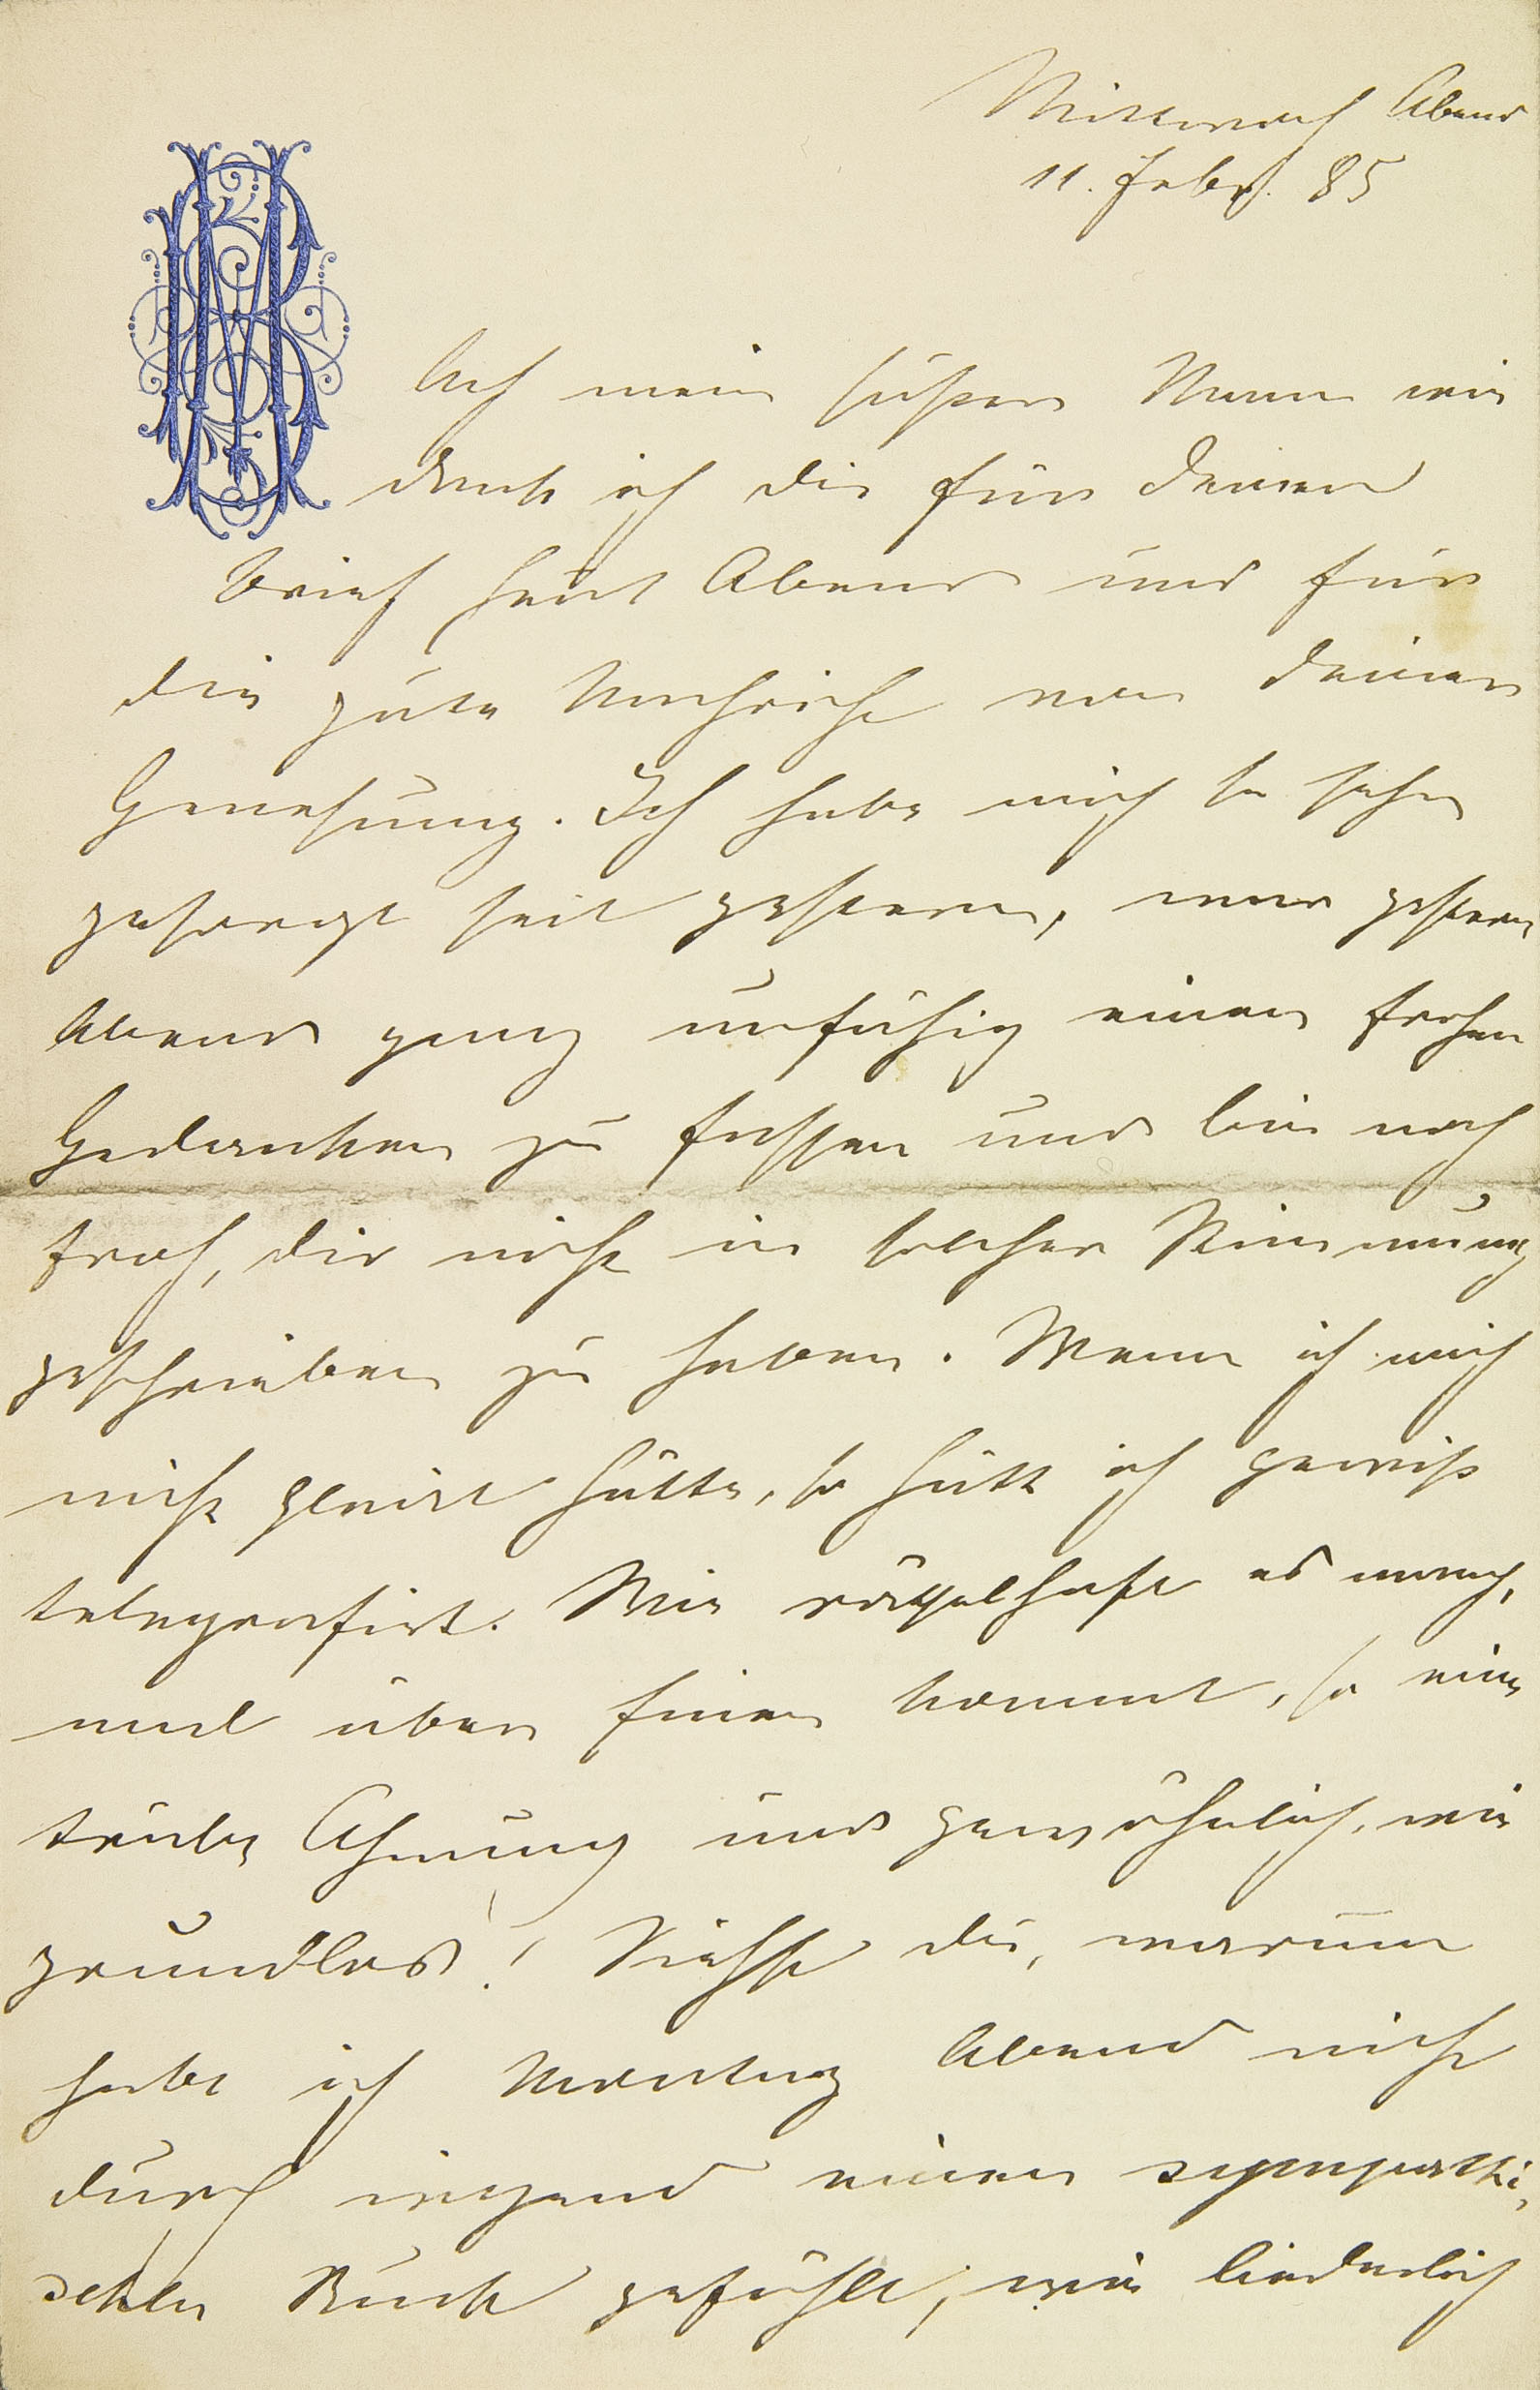 Mittwoch Abend
11. Febr. 85
Ach mein süßer Mann wie
dank ich dir für deinen
Brief heut Abend und für
die gute Nachricht von deiner
Genesung. Ich habe mich so sehr
gesorgt seit gestern, war gestern
Abend ganz unfähig einen frohen
Gedanken zu fassen und bin noch
froh, dir nicht in solcher Stimmung
geschrieben zu haben. Wenn ich mich
nicht genirt hätte, so hätt ich gewiß
telegrafirt. Wie räthselhaft es manch,
mal über Einen kommt, so eine
trübe Ahnung und gewöhnlich, wie
grundlos! Siehst du, warum
habe ich Montag Abend nicht
durch irgend einen sympathi,
schen Ruck gefühlt, wie liederlich